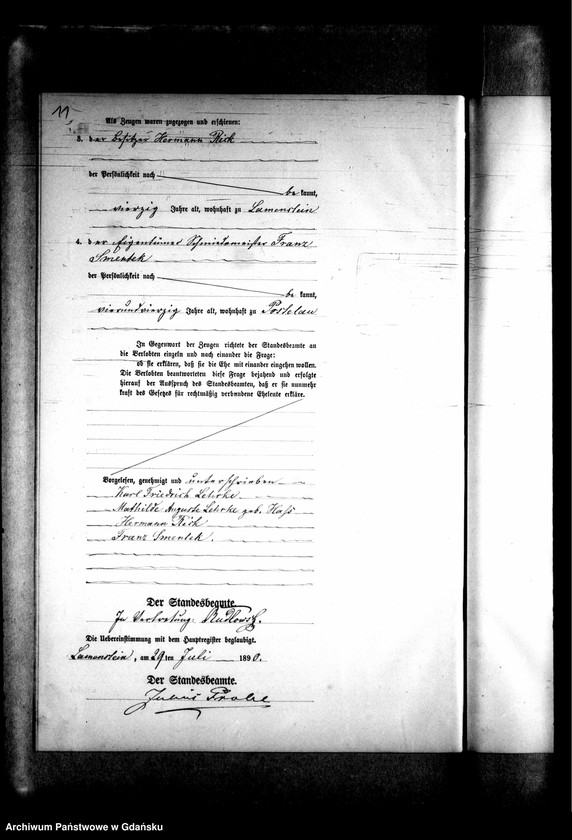 11
Als Zeugen waren zugezogen und erschienen:
3. der Besitzer Hermann Rick
der Persönlichkeit nach
be kannt,
vierzig Jahre alt, wohnhaft zu Lamenstein
4. der Eigentümer Schmiedemeister Franz
Smentek
der Persönlichkeit nach
be kannt,
vierundvierzig Jahre alt, wohnhaft zu Postelau
In Gegenwart der Zeugen richtete der Standesbeamte an
die Verlobten einzeln und nach einander die Frage:
ob sie erklären, daß sie die Ehe mit einander eingehen wollen.
Die Verlobten beantworteten diese Frage bejahend und erfolgte
hierauf der Ausspruch des Standesbeamten, daß er sie nunmehr
kraft des Gesetzes für rechtmäßig verbundene Eheleute erkläre.
Vorgelesen, genehmigt und unterschrieben
Karl Friedrich
Mathilde Auguste geb. Hass
Hermann Rick
Franz Smentek.
Der Standesbeamte.
In Vertretung:
Die Uebereinstimmung mit dem Hauptregister beglaubigt.
Lamenstein, am 29ten Juli 1890.
Der Standesbeamte.
Julius
Archiwum Państwowe w Gdańsku